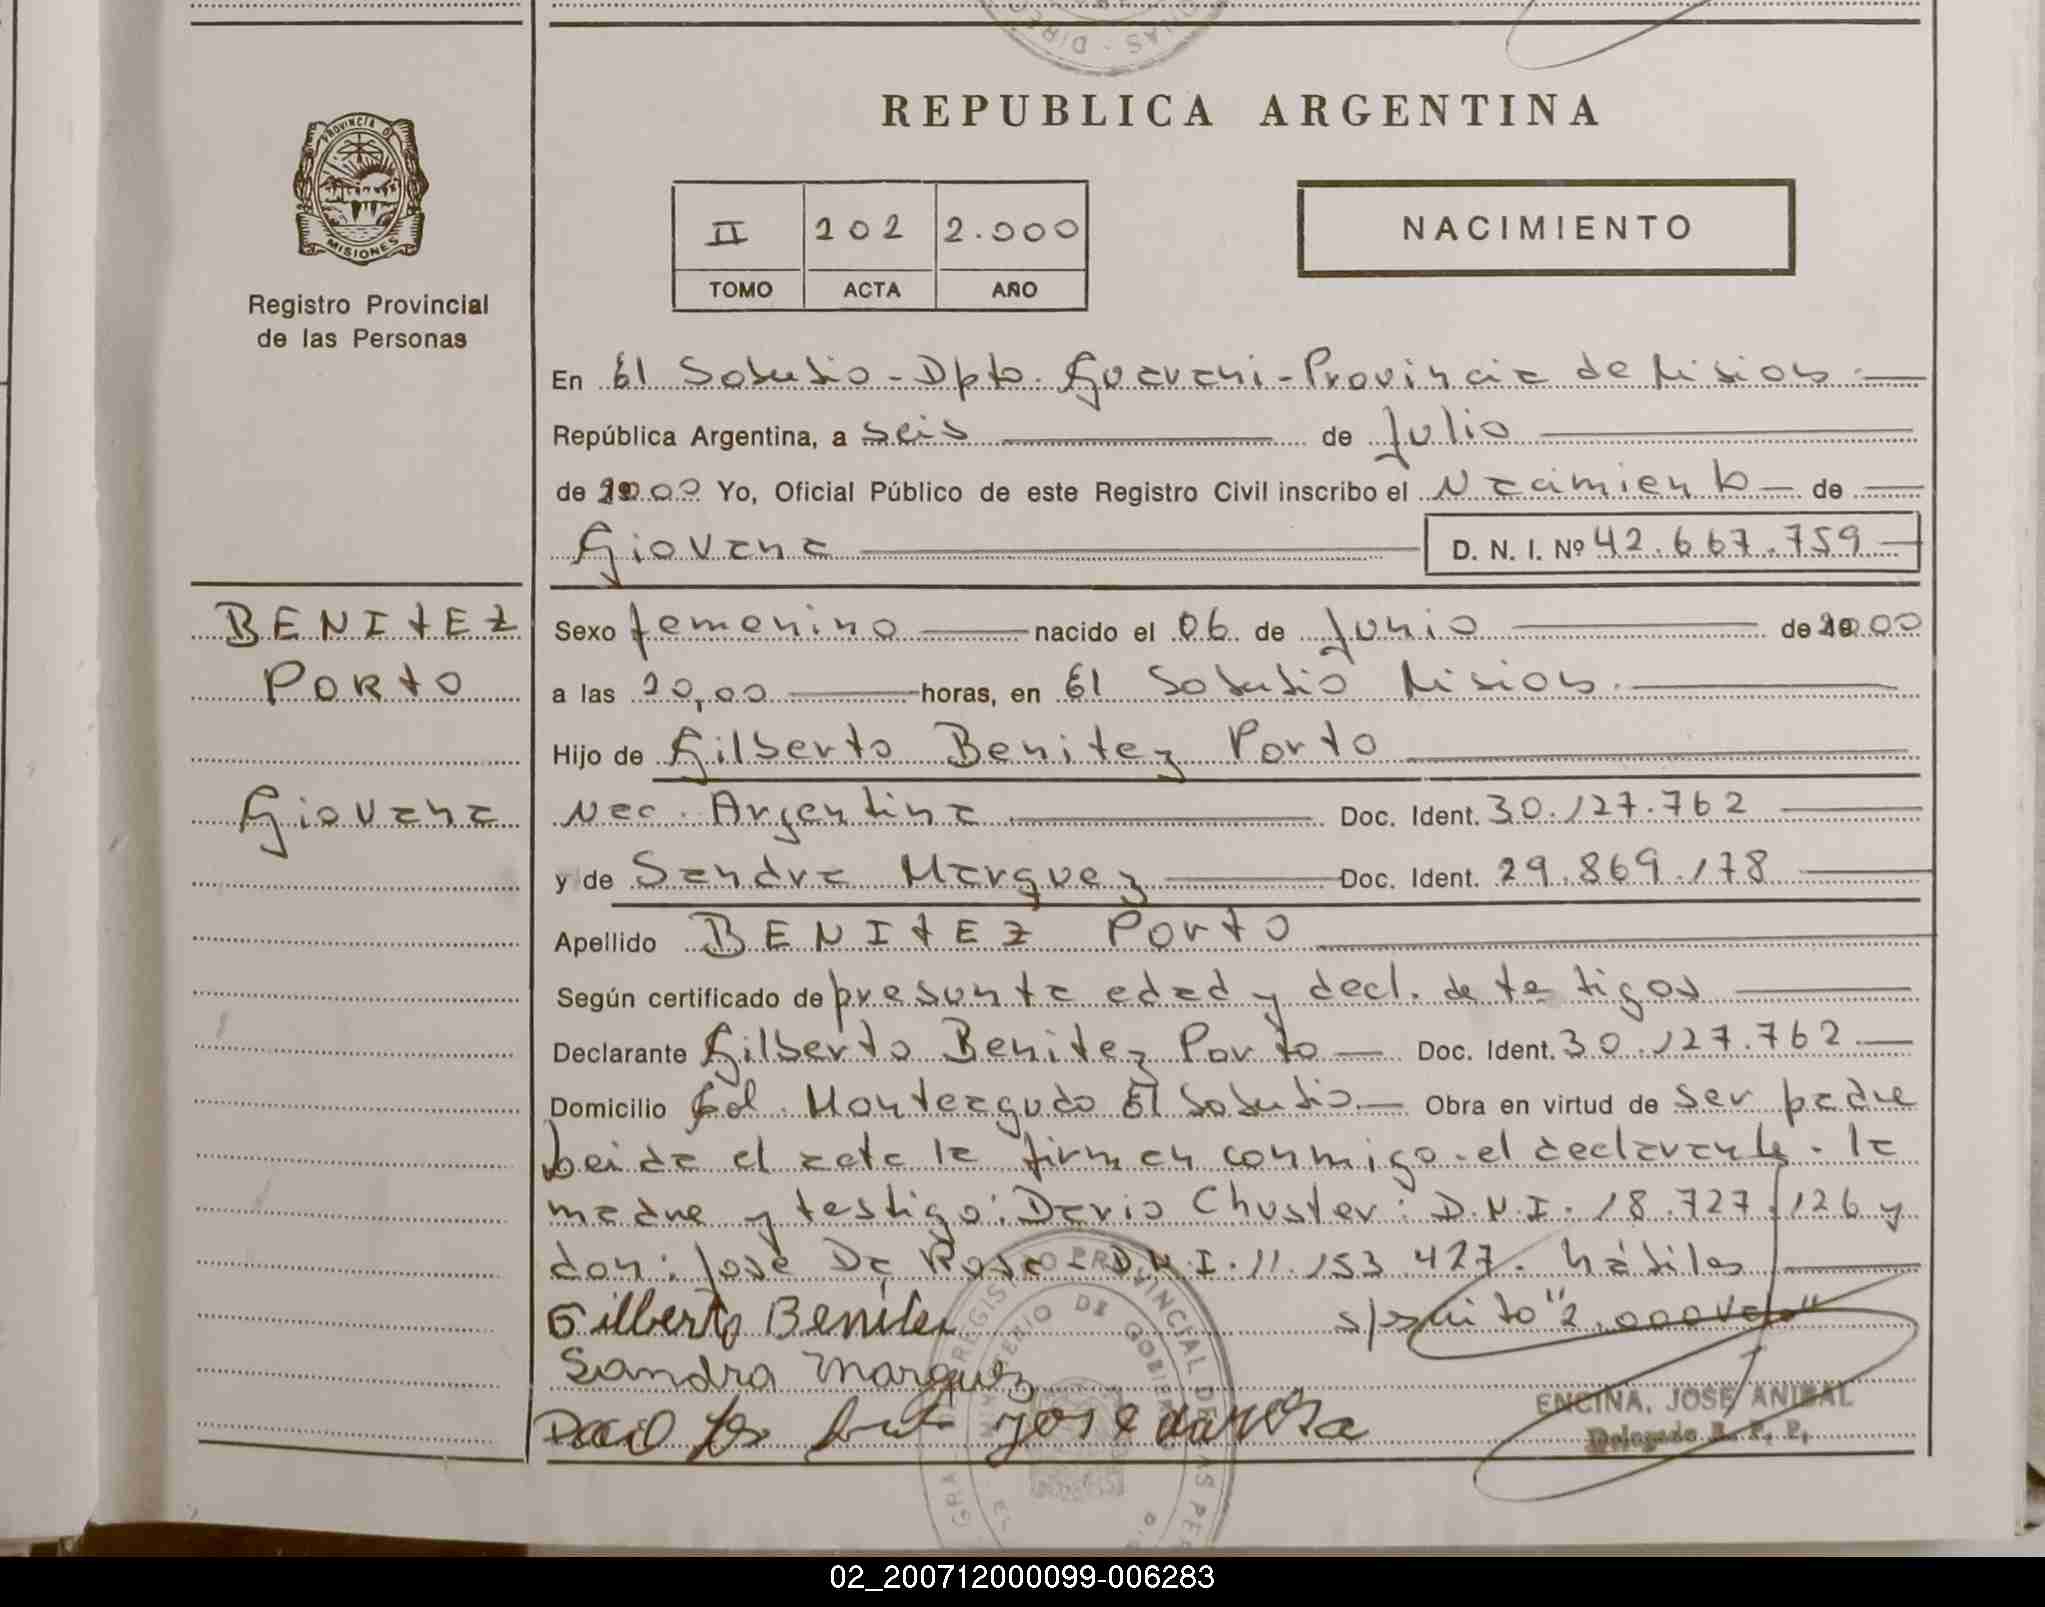 REPUBLICA ARGENTINA
PROVINCIA DE
MISIONES
Registro Provincial
de las Personas
II 202 2.000
TOMO ACTA AÑO
NACIMIENTO
En El Soberbio - Dpto. Guarani - Provincia de Misiones
República Argentina, a seis de Julio
de 2000 Yo, Oficial Público de este Registro Civil inscribo el Nacimiento de
Giovana D. N. I. Nº 42.667.759
BENITEZ
PORTO
Giovana
Sexo femenino nacido el 06 de Junio de 2000
a las 20,00 horas, en El Soberbio Misiones.
Hijo de Gilberto Benitez Porto
Nac. Argentina Doc. Ident. 30.127.762
y de Sandra Marquez Doc. Ident. 29.869.178
Apellido BENITEZ Porto
Según certificado de presunta edad y decl. de testigos
Declarante Gilberto Benitez Porto Doc. Ident. 30.127.762
Domicilio Col. Monteagudo El Soberbio. Obra en virtud de ser padre
Leida el acta la firman conmigo el declarante. la
madre y testigo: Dario Chuster: D.N.I. 18.727.126 y
don: Jose Da Rosa D.N.I. 11.153.427. hábiles
Gilberto Benitez s/ "2.000 Vale"
Sandra Marquez
Jose da Rosa
ENCINA, JOSE ANIBAL
Delegado R. P. P.
REGISTRO PROVINCIAL DE LAS PE
MINISTERIO DE GOBIE
02_200712000099-006283